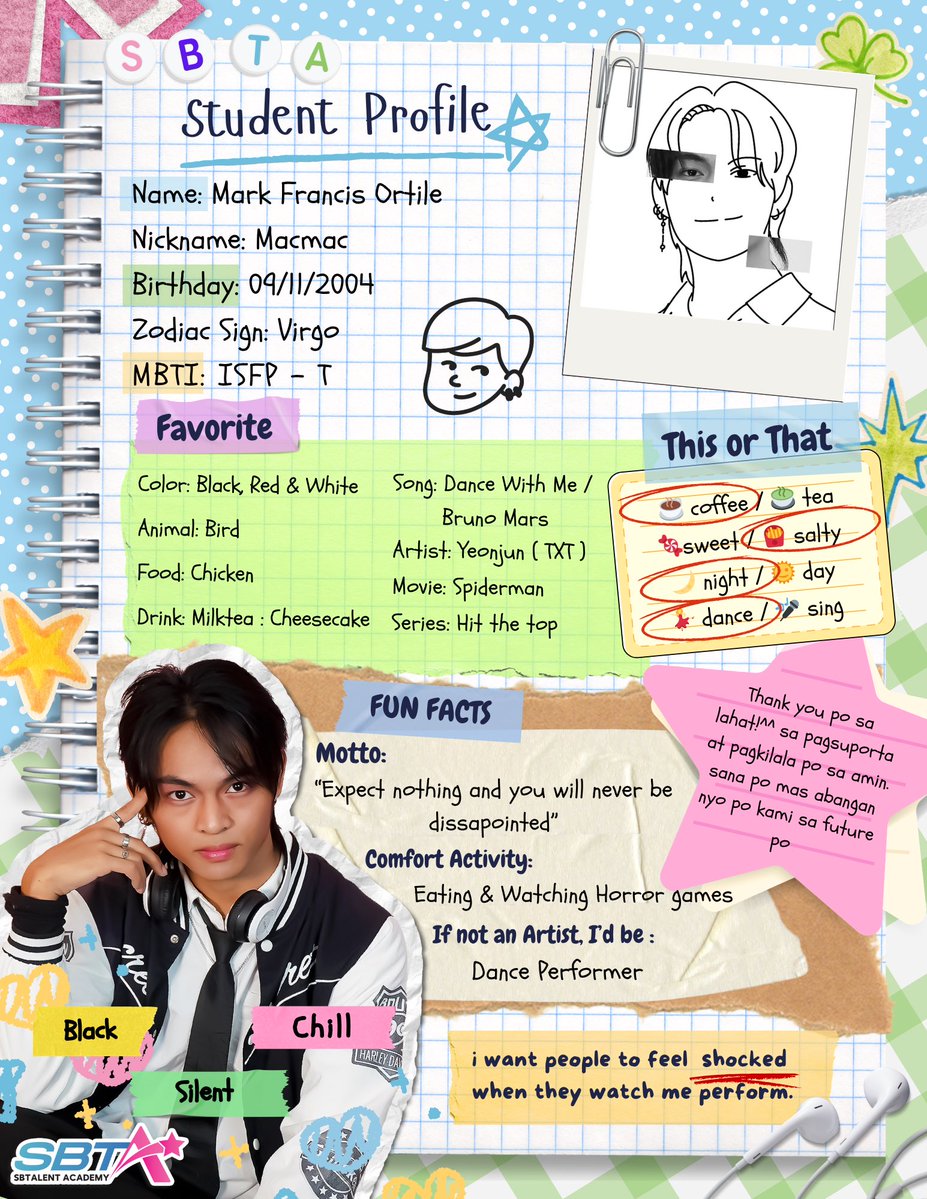 SBTA
Student Profile
Name: Mark Francis Ortile
Nickname: Macmac
Birthday: 09/11/2004
Zodiac Sign: Virgo
MBTI: ISFP - T
Favorite
Color: Black, Red & White
Animal: Bird
Food: Chicken
Drink: Milktea : Cheesecake
Song: Dance With Me /
Bruno Mars
Artist: Yeonjun ( TXT )
Movie: Spiderman
Series: Hit the top
This or That
coffee / tea
sweet / salty
night / day
dance / sing
FUN FACTS
Motto:
“Expect nothing and you will never be
dissapointed”
Comfort Activity:
Eating & Watching Horror games
If not an Artist, I'd be :
Dance Performer
Thank you po sa
lahat!^^ sa pagsuporta
at pagkilala po sa amin.
sana po mas abangan
nyo po kami sa future
po
Black
Chill
Silent
i want people to feel shocked
when they watch me perform.
SBTA
SBTALENT ACADEMY